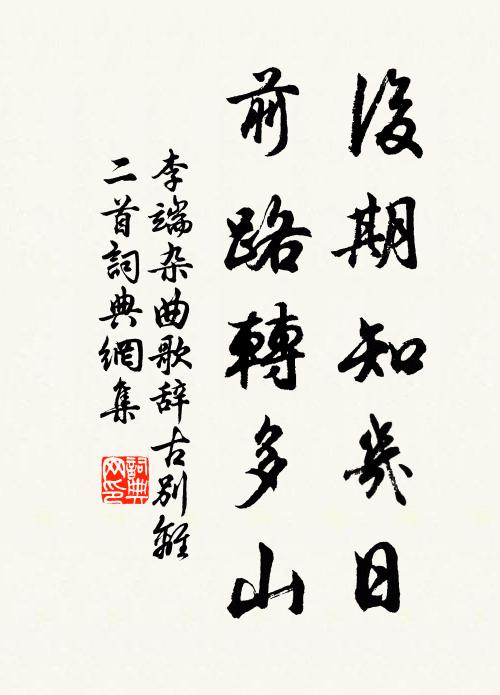 後期知幾日
前路轉多山
李端杂曲歌辞古别離
二首詞典網集
詞典
网印